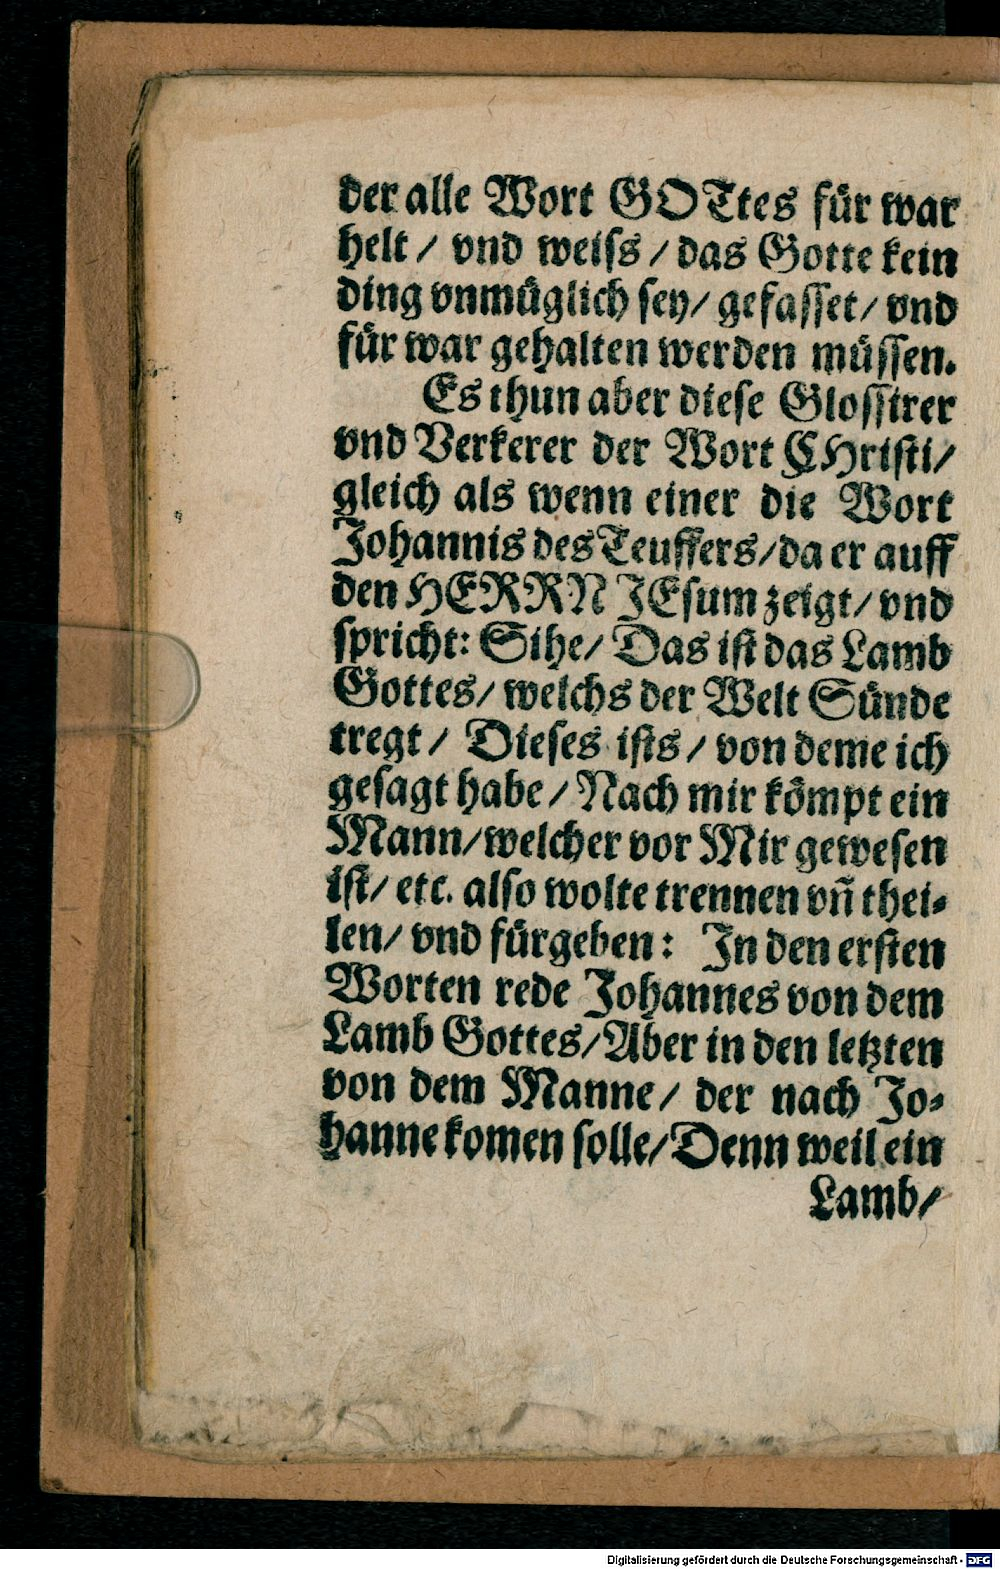 der alle Wort GOTtes für war
helt / vnd weiſs / das Gotte kein
ding vnmüglich ſey / gefaſſet / vnd
für war gehalten werden müſſen.
Es thun aber dieſe Gloſſirer
vnd Verkerer der Wort CHriſti /
gleich als wenn einer die Wort
Johannis des Teuffers / da er auff
den HERRN JEſum zeigt / vnd
ſpricht: Sihe / Das iſt das Lamb
Gottes / welchs der Welt Sünde
tregt / Dieſes iſts / von deme ich
geſagt habe / Nach mir kömpt ein
Mann / welcher vor Mir geweſen
iſt / etc. alſo wolte trennen vñ thei⸗
len / vnd fürgeben: In den erſten
Worten rede Johannes von dem
Lamb Gottes / Aber in den letzten
von dem Manne / der nach Jo⸗
hanne komen ſolle / Denn weil ein
Lamb /
Digitalisierung gefördert durch die Deutsche Forschungsgemeinschaft - DFG